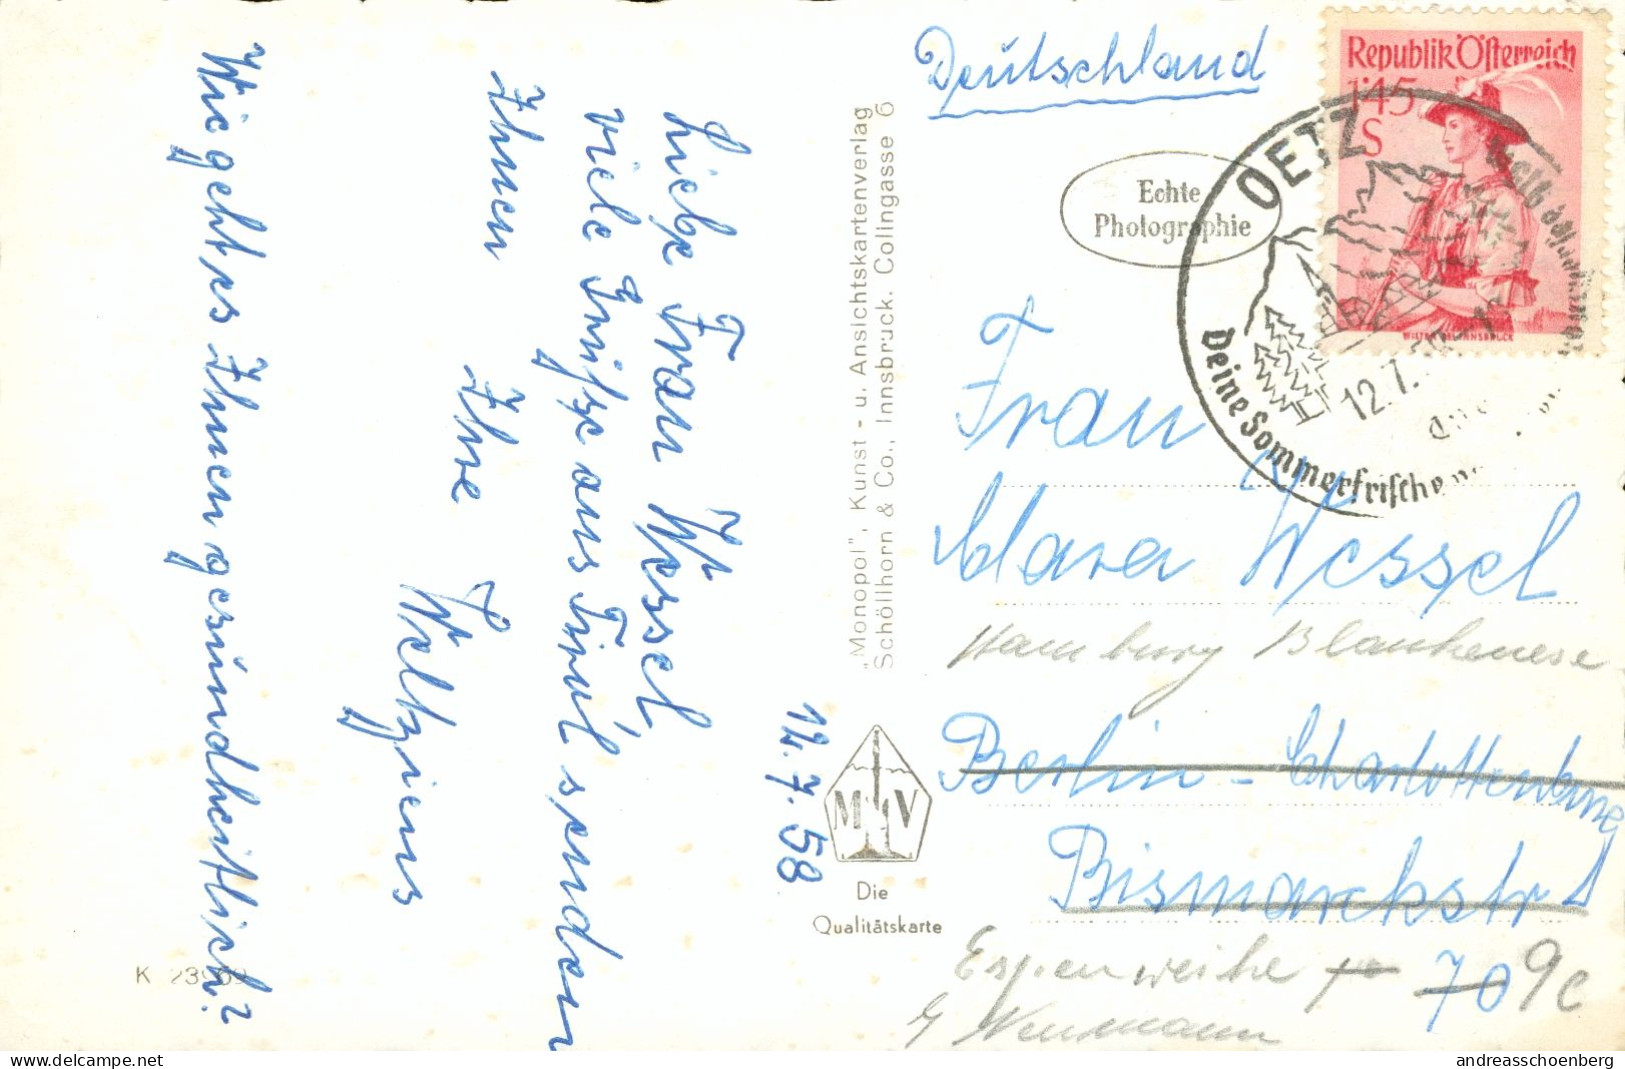 Liebe Frau Wessel,
viele Grüße aus Tirol senden
Ihnen
Ihre
Weltziens
Wie geht es Ihnen gesundheitlich?
12.7.58
K
„Monopol", Kunst - u. Ansichtskartenverlag
Schöllhorn & Co., Innsbruck. Colingasse 6
M V
Die
Qualitätskarte
Deutschland
Echte
Photographie
Republik Österreich
1'45
S
OETZ
Deine Sommerfrische
12.7.
Frau
Clara Wessel
Hamburg Blankenese
Berlin - Charlottenburg
Bismarckstr
70 9c
Espenweihe
b/ Neumann
delcampe.net
andreasschoenberg